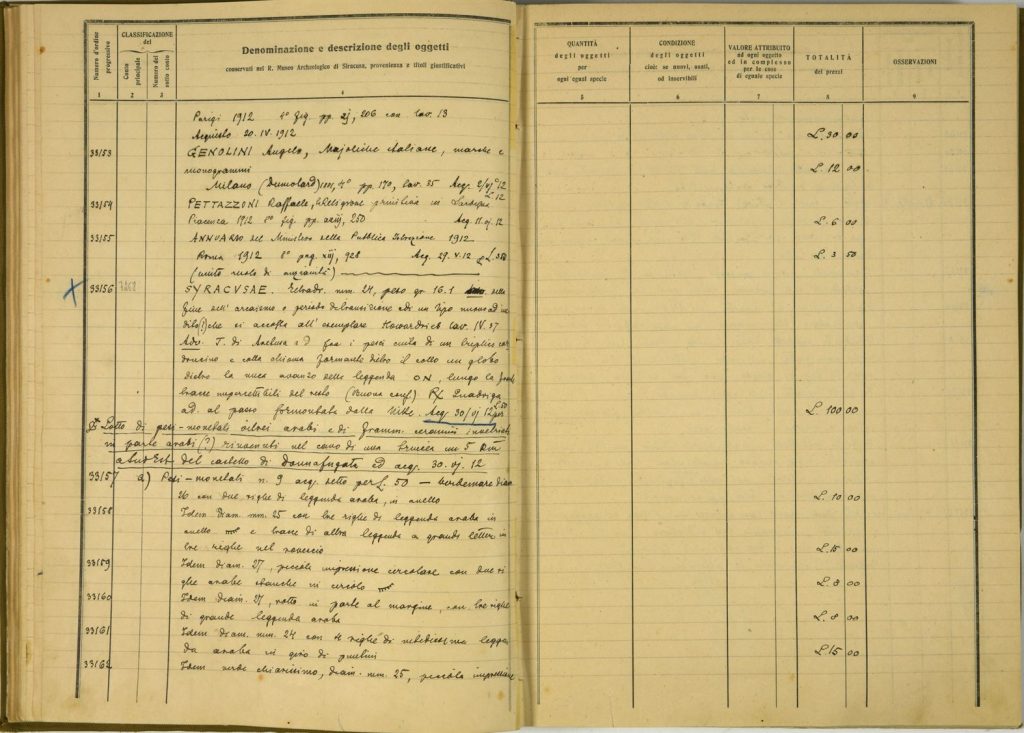 Numero d'ordine progressivo
CLASSIFICAZIONE del
Conto principale
Numero del sotto conto
Denominazione e descrizione degli oggetti
conservati nel R. Museo Archeologico di Siracusa, provenienza e titoli giustificativi
QUANTITÀ degli oggetti per ogni egual specie
CONDIZIONE degli oggetti cioè: se nuovi, usati, od inservibili
VALORE ATTRIBUITO ad ogni oggetto ed in complesso per le cose di eguale specie
TOTALITÀ dei prezzi
OSSERVAZIONI
1 2 3 4 5 6 7 8 9
Parigi 1912 4° fig. pp. 206 con tav. 13
Acquisto 20. IV. 1912 L. 30 00
33153 GENOLINI Angelo, Majoliche italiane, marche e
monogrammi L. 12 00
Milano (Dumolard) 1881, 4° pp. 170, tav. 25 Acq. 12
33154 PETTAZZONI Raffaele, primitiva in Sardegna
Piacenza 1912 8° fig. pp. xxiij, 250 Acq. 11. vj. 12 L. 6 00
33155 ANNUARIO del Ministero della Pubblica Istruzione 1912
Roma 1912 8° pag. xij, 928 Acq. 29. V. 12 L. 3 50
(unito ruolo di anzianità)
33156 SYRACVSAE. Tetradr. mm. 24, peso gr. 16.1 della
fine dell' arcaismo o periodo di transizione e di un tipo nuovo ed
che si accosta all' esemplare tav. IV. 37
Adv. T. di Aretusa a D fra i pesci cinta di un triplice
e colla chioma formante dietro il collo un globo
dietro la nuca avanzo della leggenda ON, lungo la fronte
tracce del resto (Buona conf.) R/ Quadriga
ad. al passo sormontata dalla Nike. Acq. 30/vj 12 L. 100 00
Lotto di pesi-monetali vitrei arabi e di framm. ceramici invetriati
in parte arabi (?) rinvenuti nel cavo di una a 5 Km
a Sud Est del castello di Donnafugata ed acq. 30. vj. 12
33157 a) Pesi-monetali n. 9 acq. detto per L. 50 — diam.
26 con due righe di leggenda araba, in anello L. 10 00
33158 Idem diam. mm. 25 con tre righe di leggenda araba in
anello e tracce di altra leggenda a grandi lettere in
tre righe nel rovescio L. 15 00
33159 Idem diam. 27, piccola impressione circolare con due ri
ghe arabe in circolo L. 8 00
33160 Idem diam. 27, rotto in parte al margine, con tre righe
di grande leggenda araba L. 8 00
33161 Idem diam. mm. 24 con 4 righe di leggen
da araba in giro di puntini L. 15 00
33162 Idem verde chiarissimo, diam. mm. 25, piccola impressione